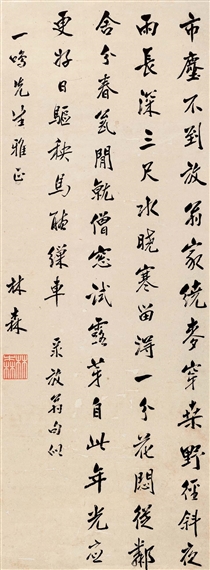 市塵不到放翁家繞麥穿桑野徑斜夜
雨長深三尺水曉寒留得一分花悶從鄰
舍分春瓮閒就僧窗試露芽自此年光應
更好日驅秧馬聽繅車 录放翁句似
一鳴先生雅正
林森